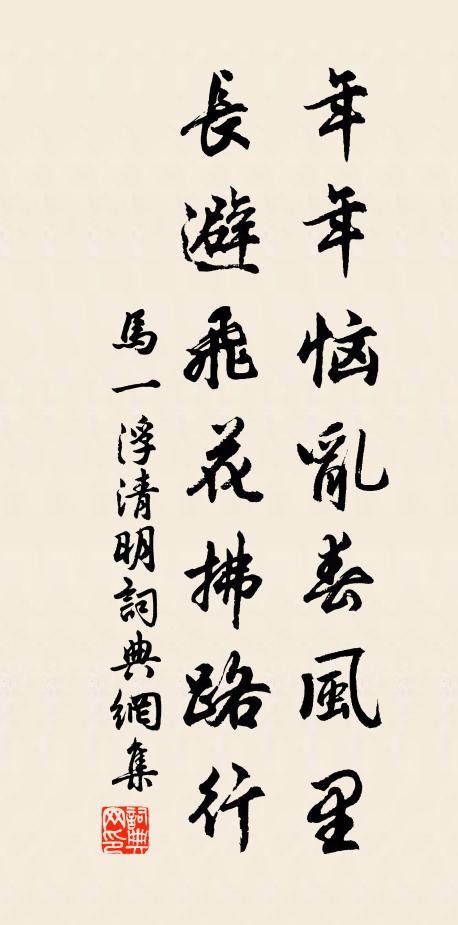 年年恼亂春風里
長避飛花拂路行
馬一浮清明詞典網集
詞典网印